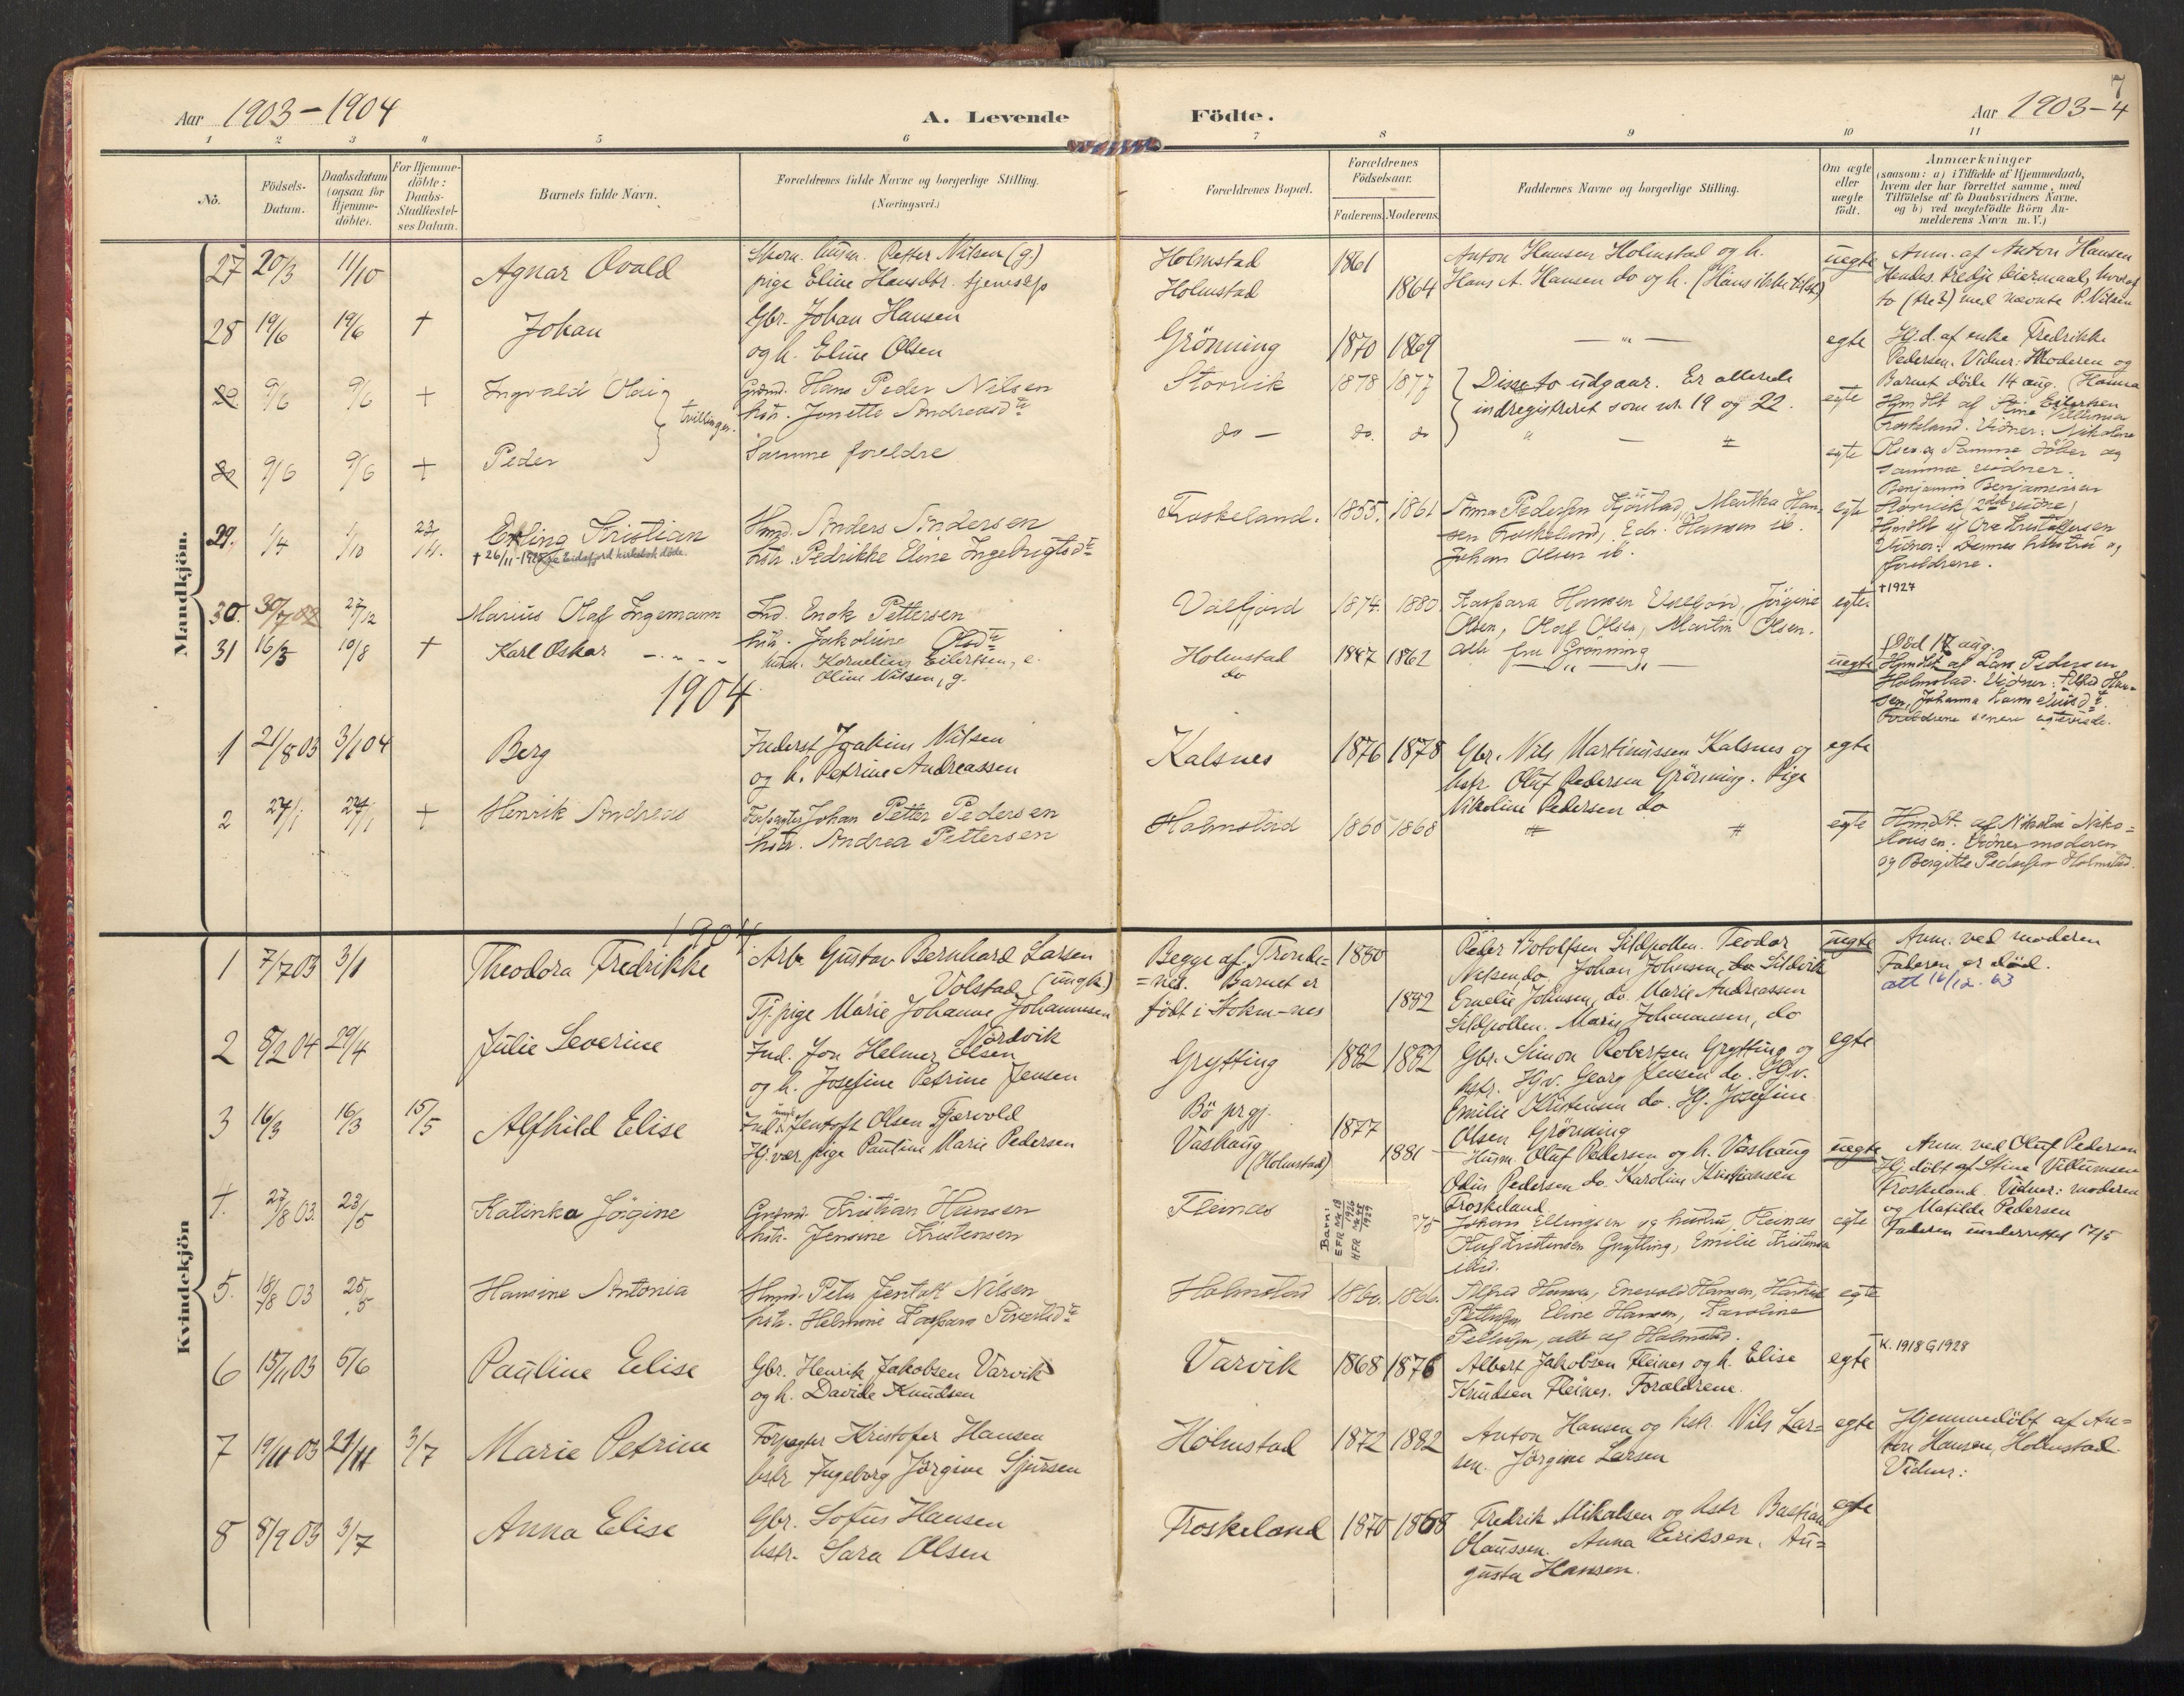 Aar 1903-1904
A. Levende Födte.
Aar 1903-4
7
1 2 3 4 5 6 7 8 9 10 11
No.
Födsels-Datum.
Daabsdatum (ogsaa for Hjemme-döbte).
For Hjemme-döbte: Daabs-Stadfæstel-ses Datum.
Barnets fulde Navn.
Forældrenes fulde Navne og borgerlige Stilling.
(Næringsvei.)
Forældrenes Bopæl.
Forældrenes Födselsaar.
Faderens. Moderens.
Faddernes Navne og borgerlige Stilling.
Om ægte eller uægte födt.
Anmærkninger
(saasom: a) i Tilfælde af Hjemmedaab,
hvem der har forrettet samme, med
Tilföielse af to Daabsvidners Navne.
og b) ved uægtefödte Börn An-
melderens Navn m. V.)
Mandkjön.
27 20/3 11/10 Agnar Ovald
Petter Nilsen (g.)
pige Eline Hansdtr.
Holmstad
Holmstad
1861
1864
Anton Hansen Holmstad og h.
Hans A. Hansen do og h.
uegte
Anm. af Anton Hansen
med nævnte P. Nilsen
28 19/6 19/6 + Johan
Gbr. Johan Hansen
og h. Eline Olsen
Grönning 1870 1869
egte
Hj.d. af enke Fredrikke
Pedersen. Vidner: Moderen og
Barnet döde 14 aug.
9/6 9/6 + Ingvald Olai
tvillinger.
Hans Peder Nilsen
hstr. Jonette Andreasdtr
Storvik 1878 1877
Disse to udgaar. Er allerede
indregistreret som nr. 19 og 22.
egte
Froskeland. Vidner: Nikoline
9/6 9/6 + Peder
Samme foreldre
do do. do
egte
Olsen og
samme vidner.
29. 1/4 1/10 Erling Kristian
+ 26/11-19
Anders Andersen
hstr. Pedrikke Eline Ingebrigtsdtr
Froskeland. 1855. 1861
Anna Pedersen Mertha Han-
sen Froskeland, Edv. Hansen ib.
Johan Olsen ib.
egte
Benjamin Benjaminsen
Vidner: Dennes hustru og
foreldrene.
30. 30/7 02 27/12 Marius Olaf Ingemann
Ind. Enok Pettersen
hstr. Jakobine Olsdtr
Valfjord 1874. 1880
Kaspara Hansen Jörgine
Olsen, Olaf Olsen, Martin Olsen.
alle fra Grönning
egte.
+1927
31 16/3 10/8 + Karl Oskar
Kornelius Eilertsen, e.
Oline Nilsen, g.
Holmstad
do
1847 1862
uegte
Död 17 aug.
Hjmdbt. af Lars Pedersen
Holmstad. Vidner: Alfred Han-
sen, Johanna
Foreldrene senere egteviede.
1904
1 21/8 03 3/1 04 Berg
Inderst Joakim Nilsen
og h. Petrine Andreassen
Kalsnes 1876 1878
Gbr. Nils Martinussen Kalsnes og
hstr. Oluf Pedersen Grönning. Pige
Nikoline Pedersen do
egte
2 24/1 24/1 + Henrik Andreas
Forpagter Johan Petter Pedersen
hstr. Andrea Pettersen
Holmstad 1865 1868
egte
Hmdt. af Nikolai Niko-
laisen. Vidner moderen
og Bergitte Pedersen Holmstad.
Kvindekjön
1904
1 7/7 03 3/1 Theodora Fredrikke
Arb. Gustav Bernhard Larsen
Volstad (ungk.)
Tj. pige Marie Johanne Johannesen
Nordvik
Begge af Tronde-
=nes. Barnet er
födt i Stokm-nes
1880
1882
Peder Botolfsen Sildpollen. Teodor
Nilsen do, Johan Johnsen, do Sildvik
Emelie Johnsen, do. Marie Andreassen
Sildpollen. Marie Johannesen, do
uegte
Anm. ved moderen
Faderen er död.
att 16/12. 63
2 8/2 04 29/4 Julie Severine
Ind. Jon Helmer Olsen
og h. Josefine Petrine Jensen
Grytting 1882 1882
Gbr. Simon Robertsen Grytting og
hstr. Hjv. Georg Jensen do. Hjv.
Emilie Kristensen do. Hj. Josefine
Olsen Grönning
egte
3 16/3 16/3 15/5 Alfhild Elise
Ind. Jentoft Olsen Tjærvold
Hj. vær. pige Pauline Marie Pedersen
Bö prgj.
Vashaug
(Holmstad)
1877
1881
Husm. Oluf Pedersen og h. Vashaug
Odin Pedersen do. Karoline Kristiansen
Froskeland
uegte
Anm. ved Oluf Pedersen
Hj. döbt af Stine Villumsen
Froskeland. Vidner: moderen
og Matilde Pedersen
Faderen underrettet 17/5
4. 27/8 03. 23/5 Katinka Jörgine
Kristian Hansen
hstr. Jensine Kristensen
Fleinæs
Barn:
EFR Nr 18
1926
HFR Nr 45
1929
Johan Ellingsen og hustru, Fleinæs
Kristensen Grytting, Emilie Kristensen
ibid.
egte
5. 18/8 03 25/5 Hansine Antonia
Peter Jentoft Nilsen
hstr. Helmine Kaspara Sivertsdtr
Holmstad 1860. 1866.
Alfred Hansen, Enevold Hansen,
Pettersen, Eline Hansen, Karoline
Pettersen, alle af Holmstad.
egte
6 15/11 03 5/6 Pauline Elise
Gbr. Henrik Jakobsen Varvik
og h. Davide Knudsen
Varvik 1868 1876
Albert Jakobsen Fleines og h. Elise
Knudsen Fleines. Forældrene.
egte
K. 1918 G 1928
7 19/11 03 29/11 3/7 Marie Petrine
Forpagter Kristofer Hansen
hstr Ingeborg Jörgine Sjursen
Holmstad 1872 1882
Anton Hansen og hstr. Nils Lar=
sen. Jörgine Larsen
egte
Hjemmedöbt af An=
ton Hansen, Holmstad.
Vidner:
8 8/9 03 3/7 Anna Elise
Gbr. Sofus Hansen
hstr. Sara Olsen
Froskeland 1870 1868
Fredrik Mikalsen og hstr Bastian
Olaussen. Anna Eriksen. Au=
gusta Hansen.
egte